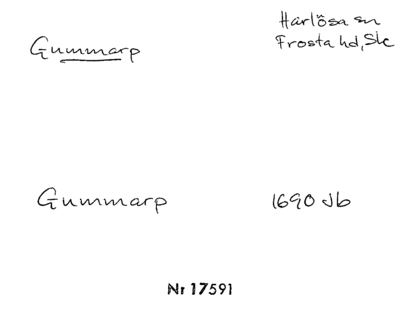 Gummarp
Harlösa sn
Frosta hd, Sk
Gummarp
1690 Jb
Nr 17591